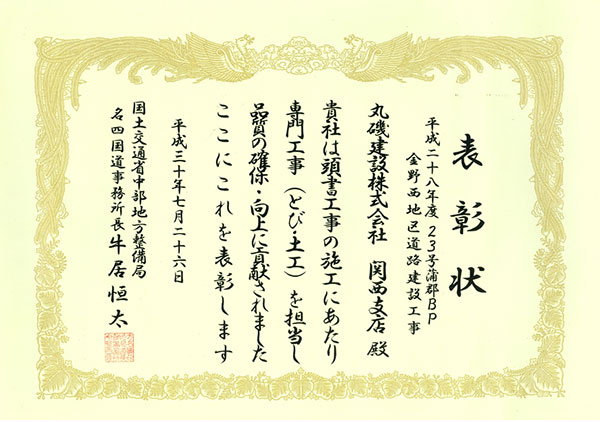 表彰状
平成二十八年度 23号蒲郡BP
金野西地区道路建設工事
丸磯建設株式会社 関西支店 殿
貴社は頭書工事の施工にあたり
専門工事(とび・土工)を担当し
品質の確保・向上に貢献されました
ここにこれを表彰します
平成三十年七月二十六日
国土交通省中部地方整備局
名四国道事務所長 牛居恒太